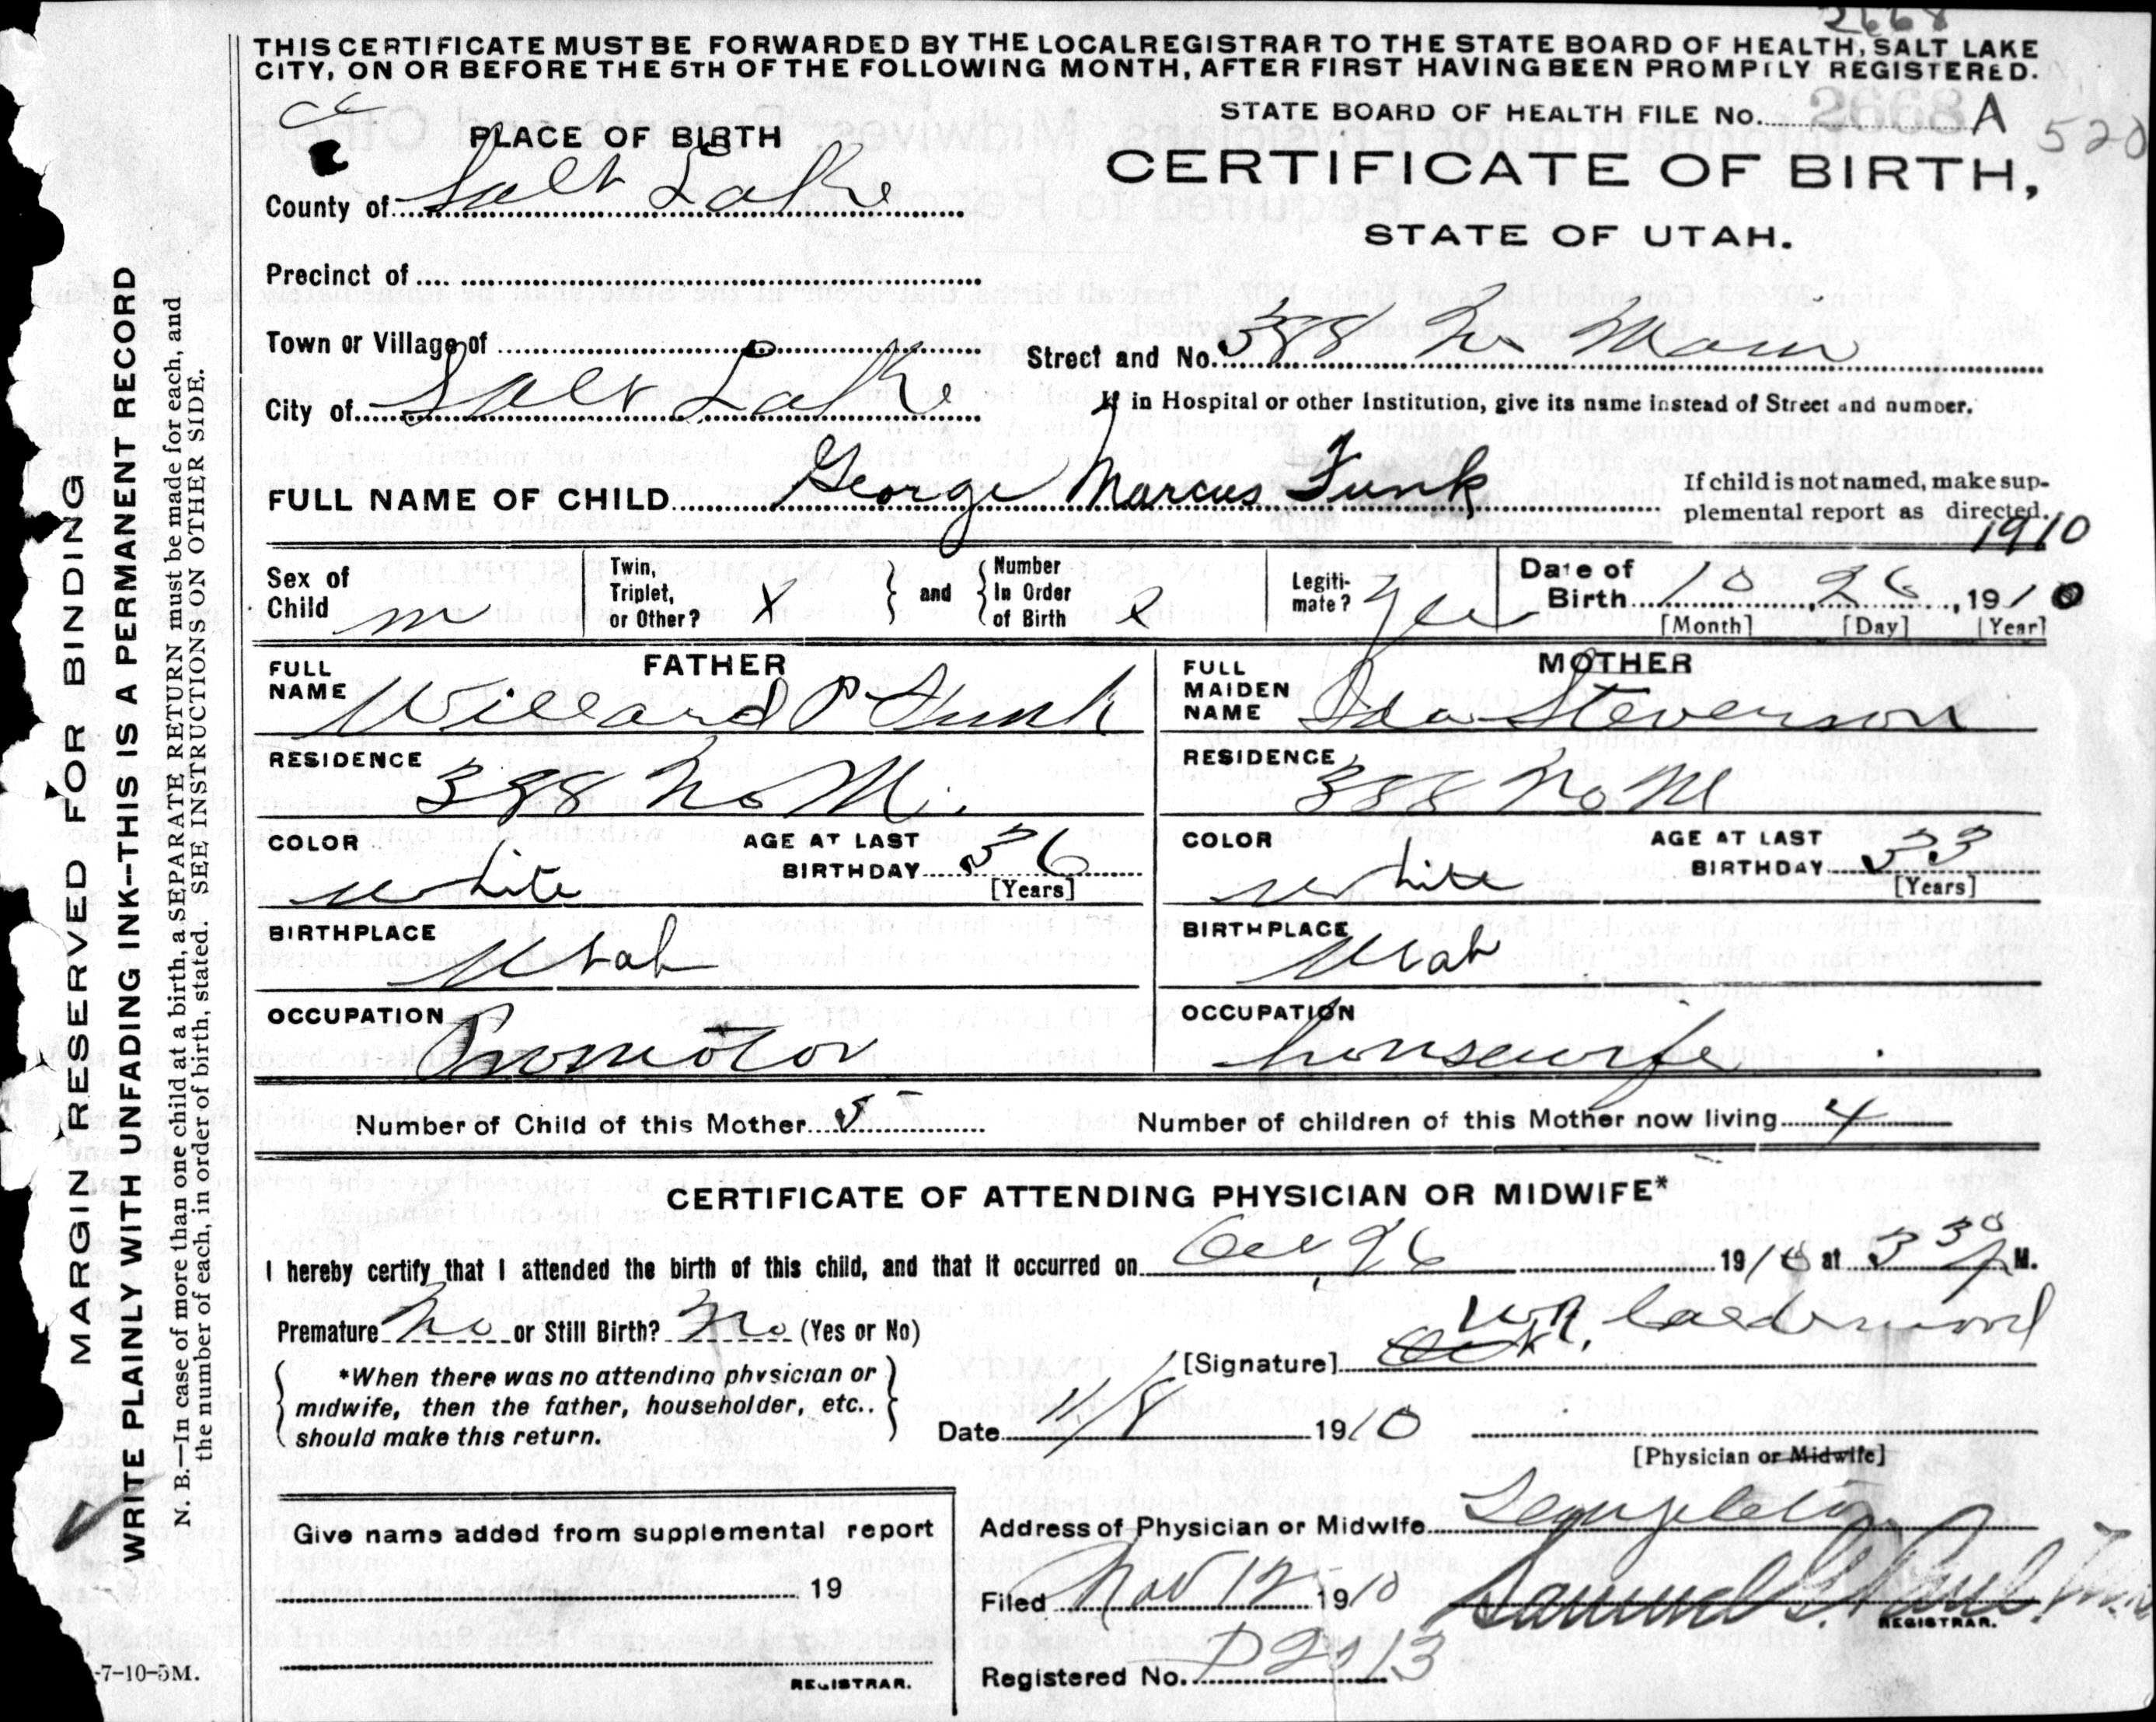 2668
THIS CERTIFICATE MUST BE FORWARDED BY THE LOCAL REGISTRAR TO THE STATE BOARD OF HEALTH, SALT LAKE
CITY, ON OR BEFORE THE 5TH OF THE FOLLOWING MONTH, AFTER FIRST HAVING BEEN PROMPTLY REGISTERED.
STATE BOARD OF HEALTH FILE No. 2668 A
520
PLACE OF BIRTH
CERTIFICATE OF BIRTH,
STATE OF UTAH.
County of Salt Lake
Precinct of
Town or Village of
Street and No. 388 No Main
City of Salt Lake
If in Hospital or other Institution, give its name instead of Street and number.
FULL NAME OF CHILD George Marcus Funk
If child is not named, make sup-
plemental report as directed.
1910
Sex of Child m
Twin, Triplet, or Other? X
and
Number In Order of Birth
Legiti-mate? Yes
Date of Birth 10 26, 1910
[Month] [Day] [Year]
FATHER
FULL NAME Willard P Funk
RESIDENCE 388 No M.
COLOR White
AGE AT LAST BIRTHDAY 36
[Years]
BIRTHPLACE Utah
OCCUPATION Promotor
MOTHER
FULL MAIDEN NAME Ida Stevenson
RESIDENCE 388 No M
COLOR White
AGE AT LAST BIRTHDAY 33
[Years]
BIRTHPLACE Utah
OCCUPATION housewife
Number of Child of this Mother 5
Number of children of this Mother now living 4
CERTIFICATE OF ATTENDING PHYSICIAN OR MIDWIFE*
I hereby certify that I attended the birth of this child, and that it occurred on Oct 26 1910 at 3 30 P M.
Premature No or Still Birth? No (Yes or No)
*When there was no attending physician or
midwife, then the father, householder, etc.,
should make this return.
[Signature] W.R. Calderwood
Date 11/8 1910
[Physician or Midwife]
Give name added from supplemental report
19
REGISTRAR.
Address of Physician or Midwife
Filed Nov 12 1910
Samuel G. Paul
REGISTRAR.
Registered No. D2013
-7-10-5M.
MARGIN RESERVED FOR BINDING
WRITE PLAINLY WITH UNFADING INK—THIS IS A PERMANENT RECORD
N. B.—In case of more than one child at a birth, a SEPARATE RETURN must be made for each, and
the number of each, in order of birth, stated. SEE INSTRUCTIONS ON OTHER SIDE.